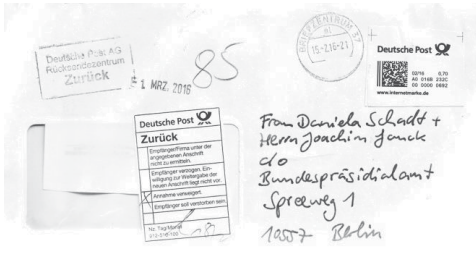 Deutsche Post AG
Rücksendezentrum
Zurück
1. MRZ. 2016
85
BRIEFZENTRUM 37
15.-2.16-21
Deutsche Post
02/16 0,70
A0 016B 232C
00 0000 0692
www.internetmarke.de
Deutsche Post
Zurück
Empfänger/Firma unter der
angegebenen Anschrift
nicht zu ermitteln.
Empfänger verzogen, Ein-
willigung zur Weitergabe der
neuen Anschrift liegt nicht vor.
X Annahme verweigert.
Empfänger soll verstorben sein.
Nr. Tag/Monat
912-016-100
Frau Daniela Schadt +
Herrn Joachim Jauck
c/o
Bundespräsidialamt
Spreeweg 1
10557 Berlin